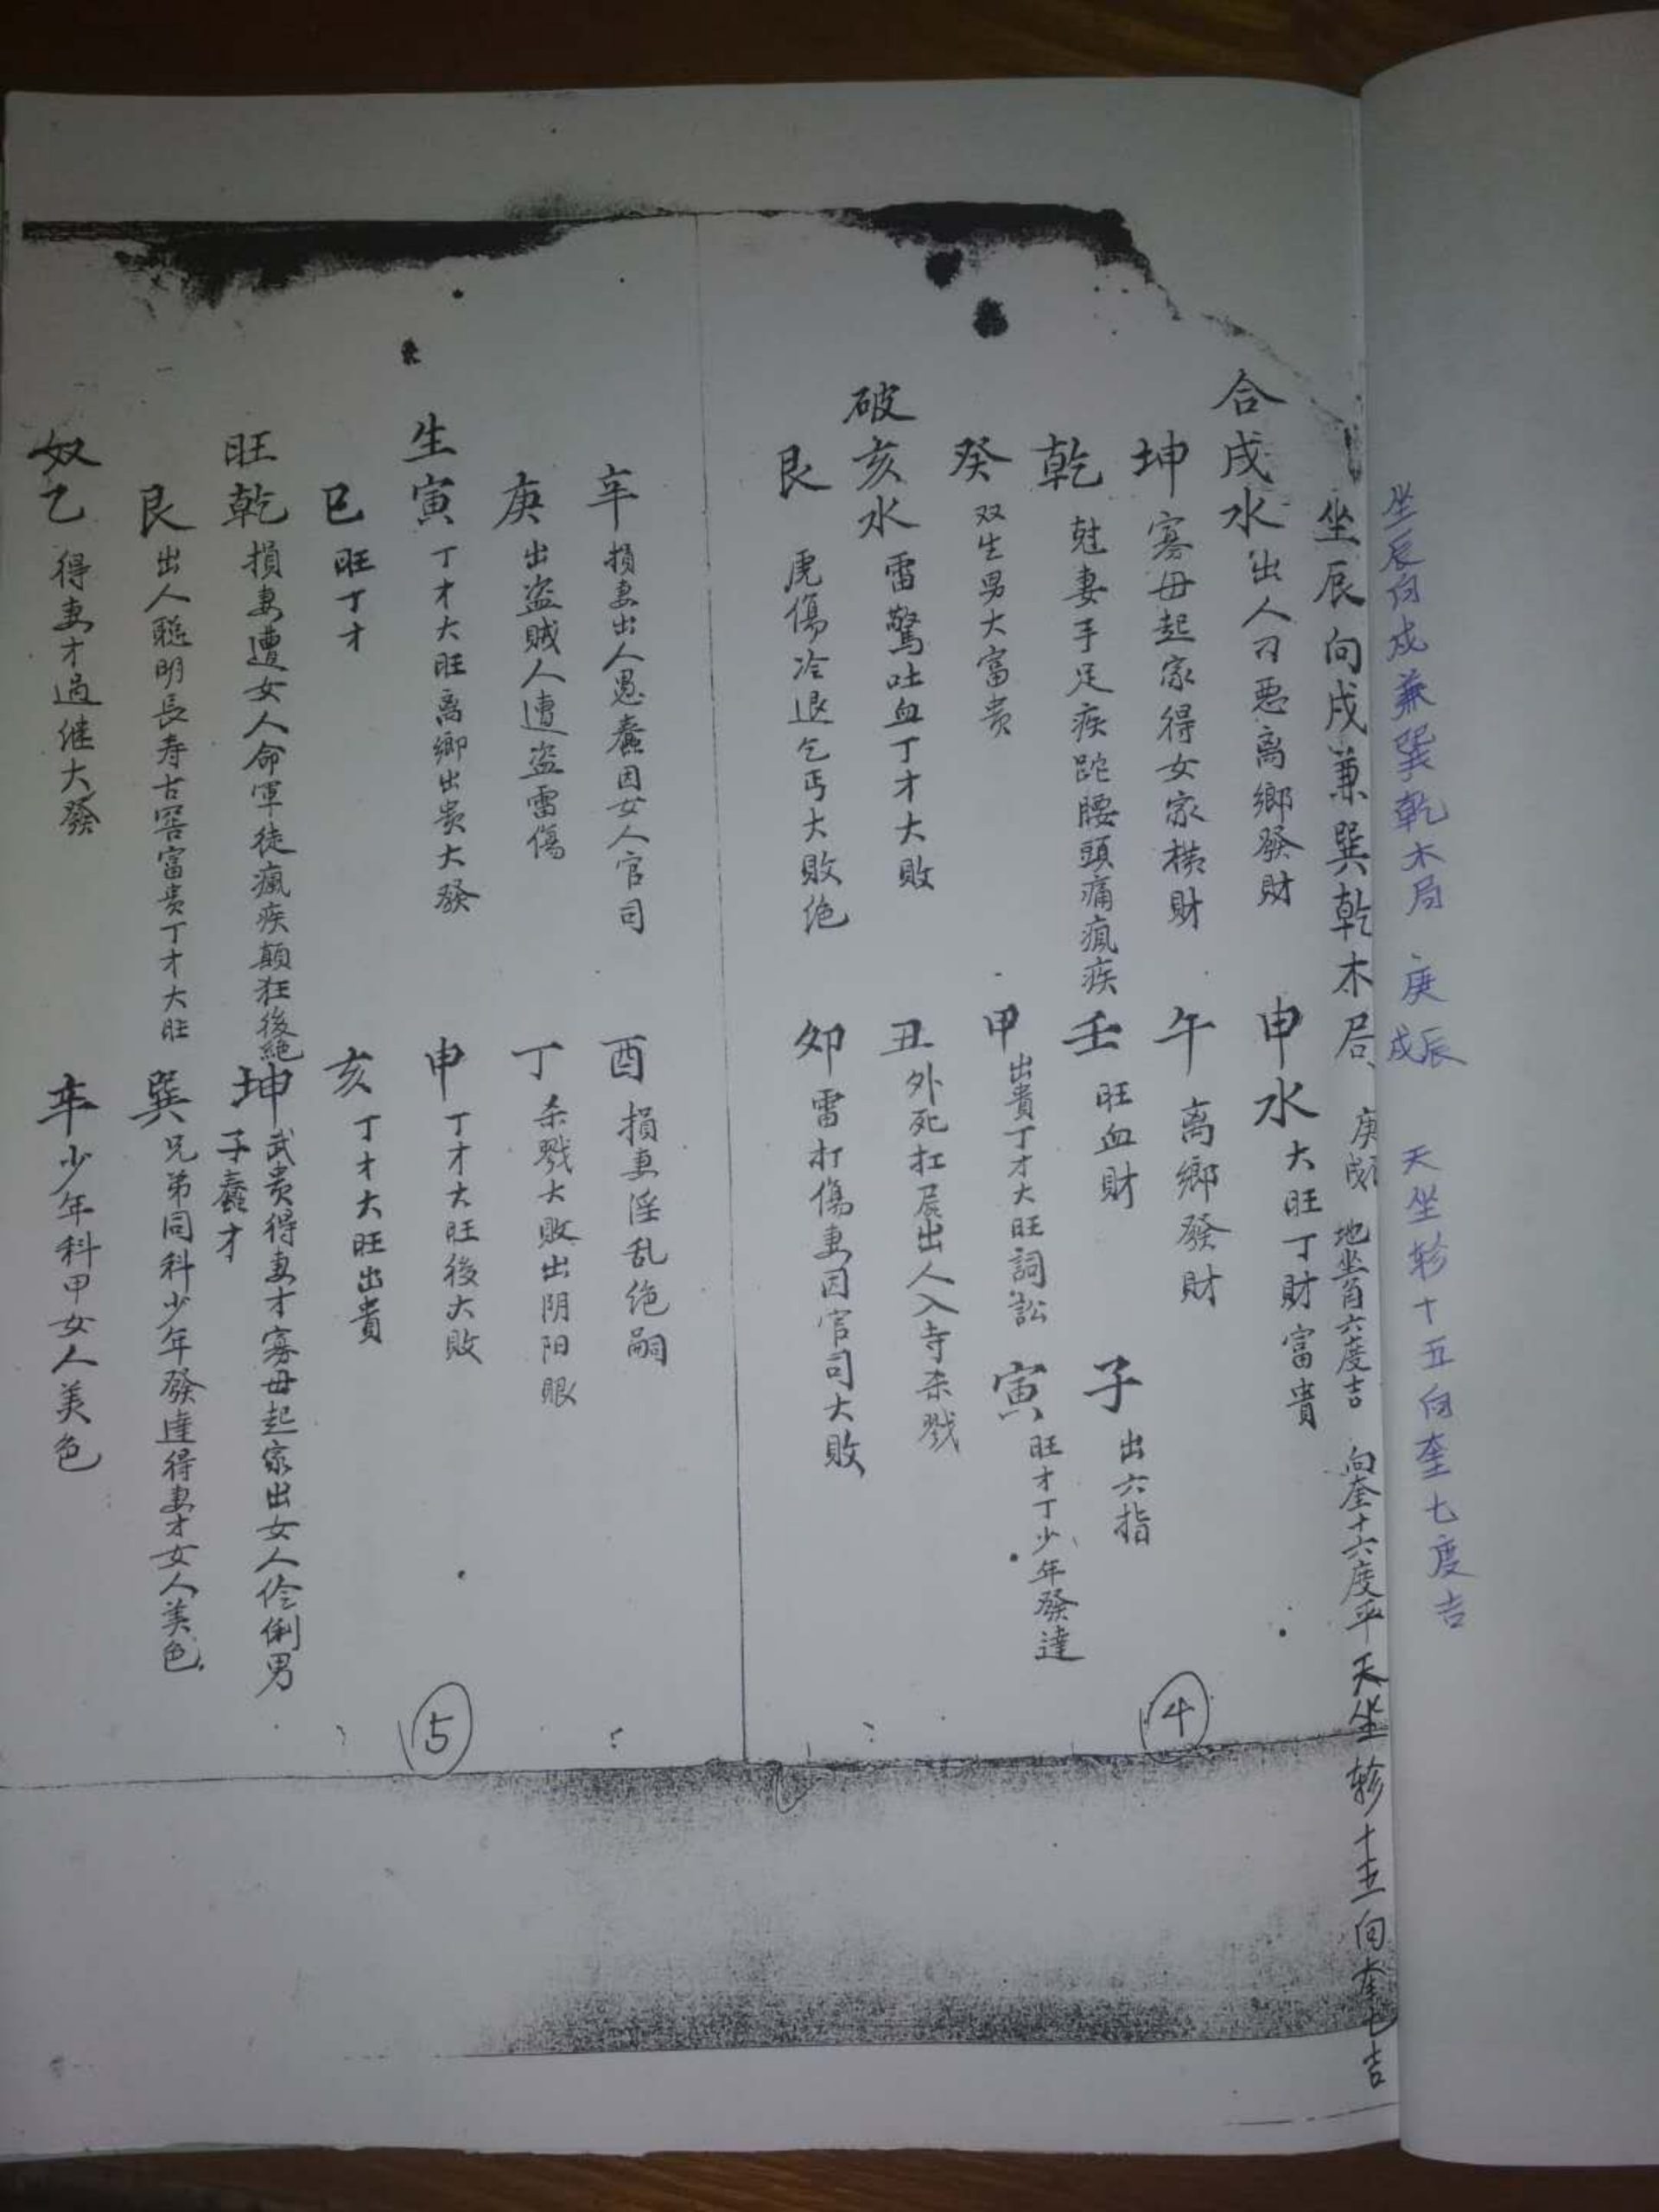 坐辰向戍兼巽乾木局 庚辰 庚戍 天坐軫十五向奎七度吉
坐辰向戍兼巽乾木局 庚辰 庚戍 地坐角六度吉 向奎十六度平 天坐軫十五向奎七吉
合戍水出人刁恶离鄉發財 申水大旺丁財富貴
坤寡母起家得女家横財 午离鄉發財
乾尅妻手足疾跎腰頭痛瘋疾 壬旺血財 子出六指
癸双生男大富贵 甲出貴丁才大旺詞訟 寅旺才丁少年發達
破亥水雷驚吐血丁才大敗 丑外死扛屍出人入寺杀戮
艮虎傷冷退乞丐大敗绝 卯雷打傷妻因官司大敗
④
辛損妻出人愚蠢因女人官司 酉損妻淫乱绝嗣
庚出盗贼人遭盗雷傷 丁杀戮大败出阴阳眼
生寅丁才大旺离鄉出贵大發 申丁才大旺後大敗
巳旺丁才 亥丁才大旺出貴
旺乾損妻遭女人命軍徒瘋疾顛狂後絕 坤武贵得妻才寡母起家出女人伶俐男子蠢才
艮出人聪明長寿古窖富贵丁才大旺 巽兄弟同科少年發達得妻才女人美色
奴乙得妻才過继大發 辛少年科甲女人美色
⑤